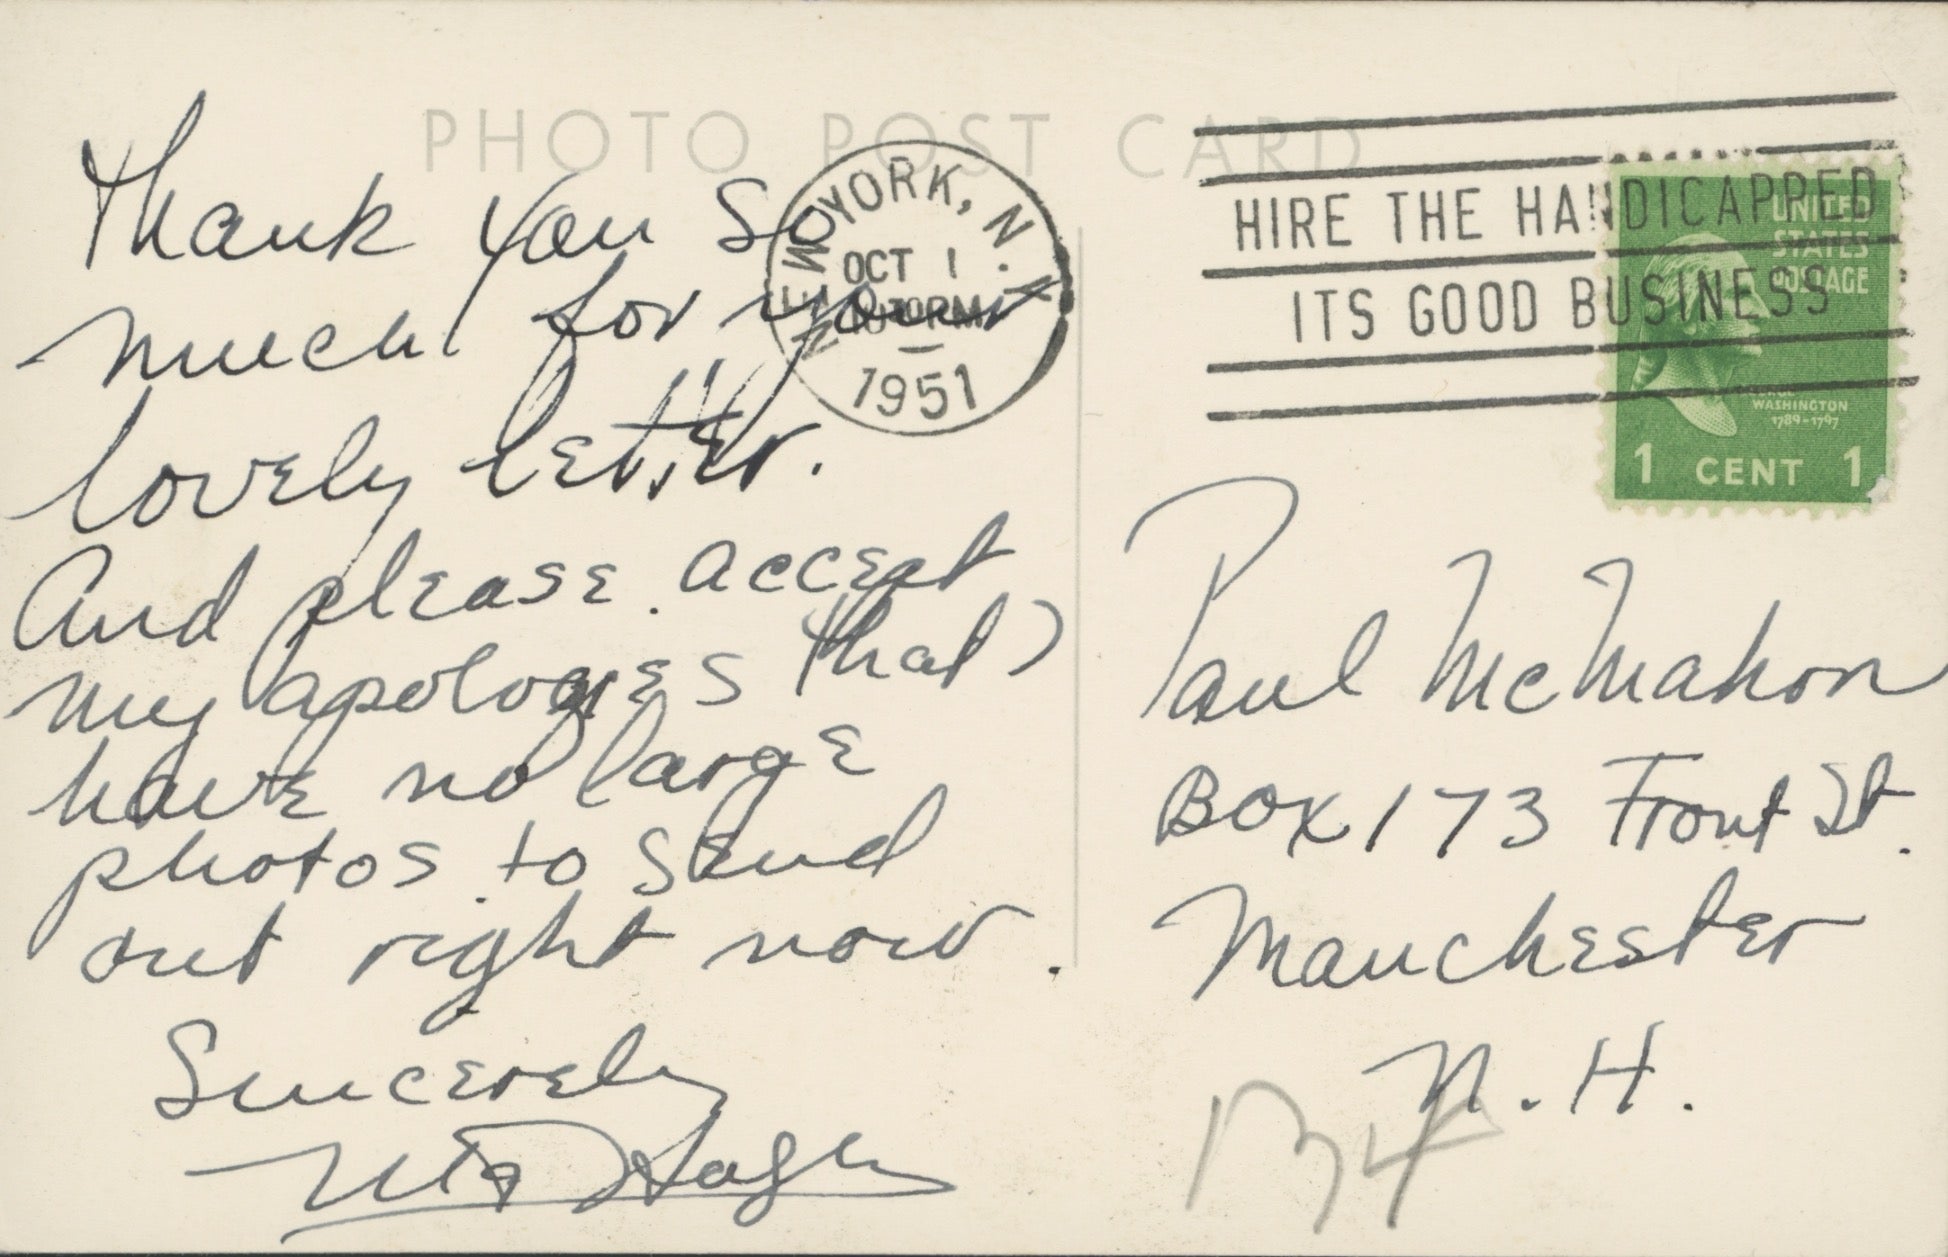 PHOTO POST CARD
Thank you so
much for your
lovely letter.
And please accept
my apologies that I
have no large
photos to send
out right now.
Sincerely
Uta Hagen
NEW YORK, N.Y.
OCT 1
1030PM
1951
HIRE THE HANDICAPPED
ITS GOOD BUSINESS
UNITED
STATES
POSTAGE
GEORGE
WASHINGTON
1789-1797
1 CENT 1
Paul McMahon
Box 173 Front St.
Manchester
N.H.